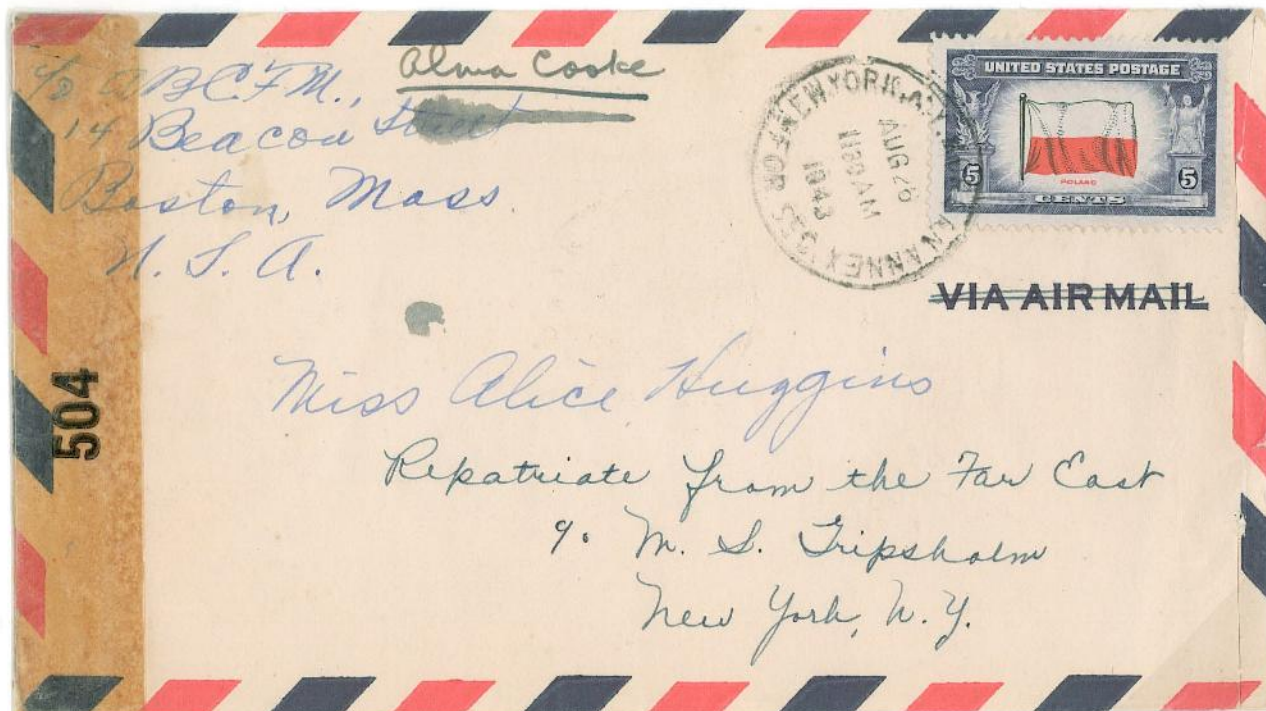 Alma Cooke
c/o A.B.C.F.M.,
14 Beacon Street
Boston, Mass.
U. S. A.
NEW YORK, N.Y.
AUG 26
1130 AM
1943
ANNEX
UNITED STATES POSTAGE
POLAND
5 5
CENTS
VIA AIR MAIL
504
Miss Alice Huggins
Repatriate from the Far East
c/o M. S. Gripsholm
New York, N. Y.